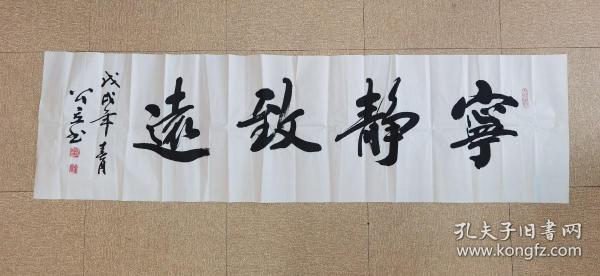 寧靜致遠
戊戌年春月
公立书
孔夫子旧书网
www.kongfz.com